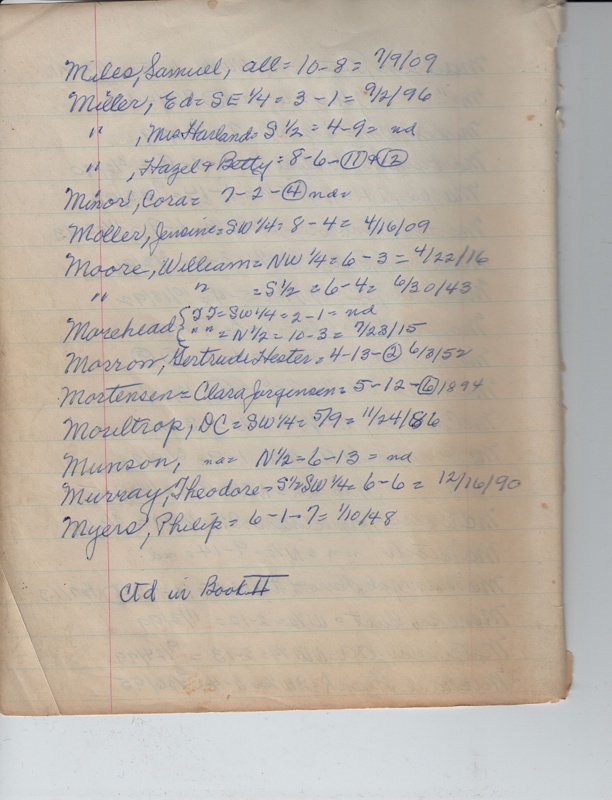 Miles, Samuel, all = 10-8 = 7/9/09
Miller, Ed = SE 1/4 = 3-1 = 9/2/96
" , Mrs Harland = S 1/2 = 4-9 = nd
" , Hazel & Betty = 8-6-⑪ & ⑫
Minor, Cora = 7-2-④ nd =
Moller, Jensine = SW 1/4 = 8-4 = 4/16/09
Moore, William = NW 1/4 = 6-3 = 4/22/16
" " = S 1/2 = 6-4 = 6/30/43
Morehead { TT = SW 1/4 = 2-1 = nd
" " = N 1/2 = 10-3 = 7/23/15
Morrow, Gertrude Hester = 4-13-② 6/3/52
Mortensen = Clara Jorgensen = 5-12-⑥ 1894
Moultrop, DC = SW 1/4 = 5/9 = 11/24/86
Munson, na = N 1/2 = 6-13 = nd
Murray, Theodore = S 1/2 SW 1/4 = 6-6 = 12/16/90
Myers, Philip = 6-1-7 = 1/10/48
Ctd in Book II